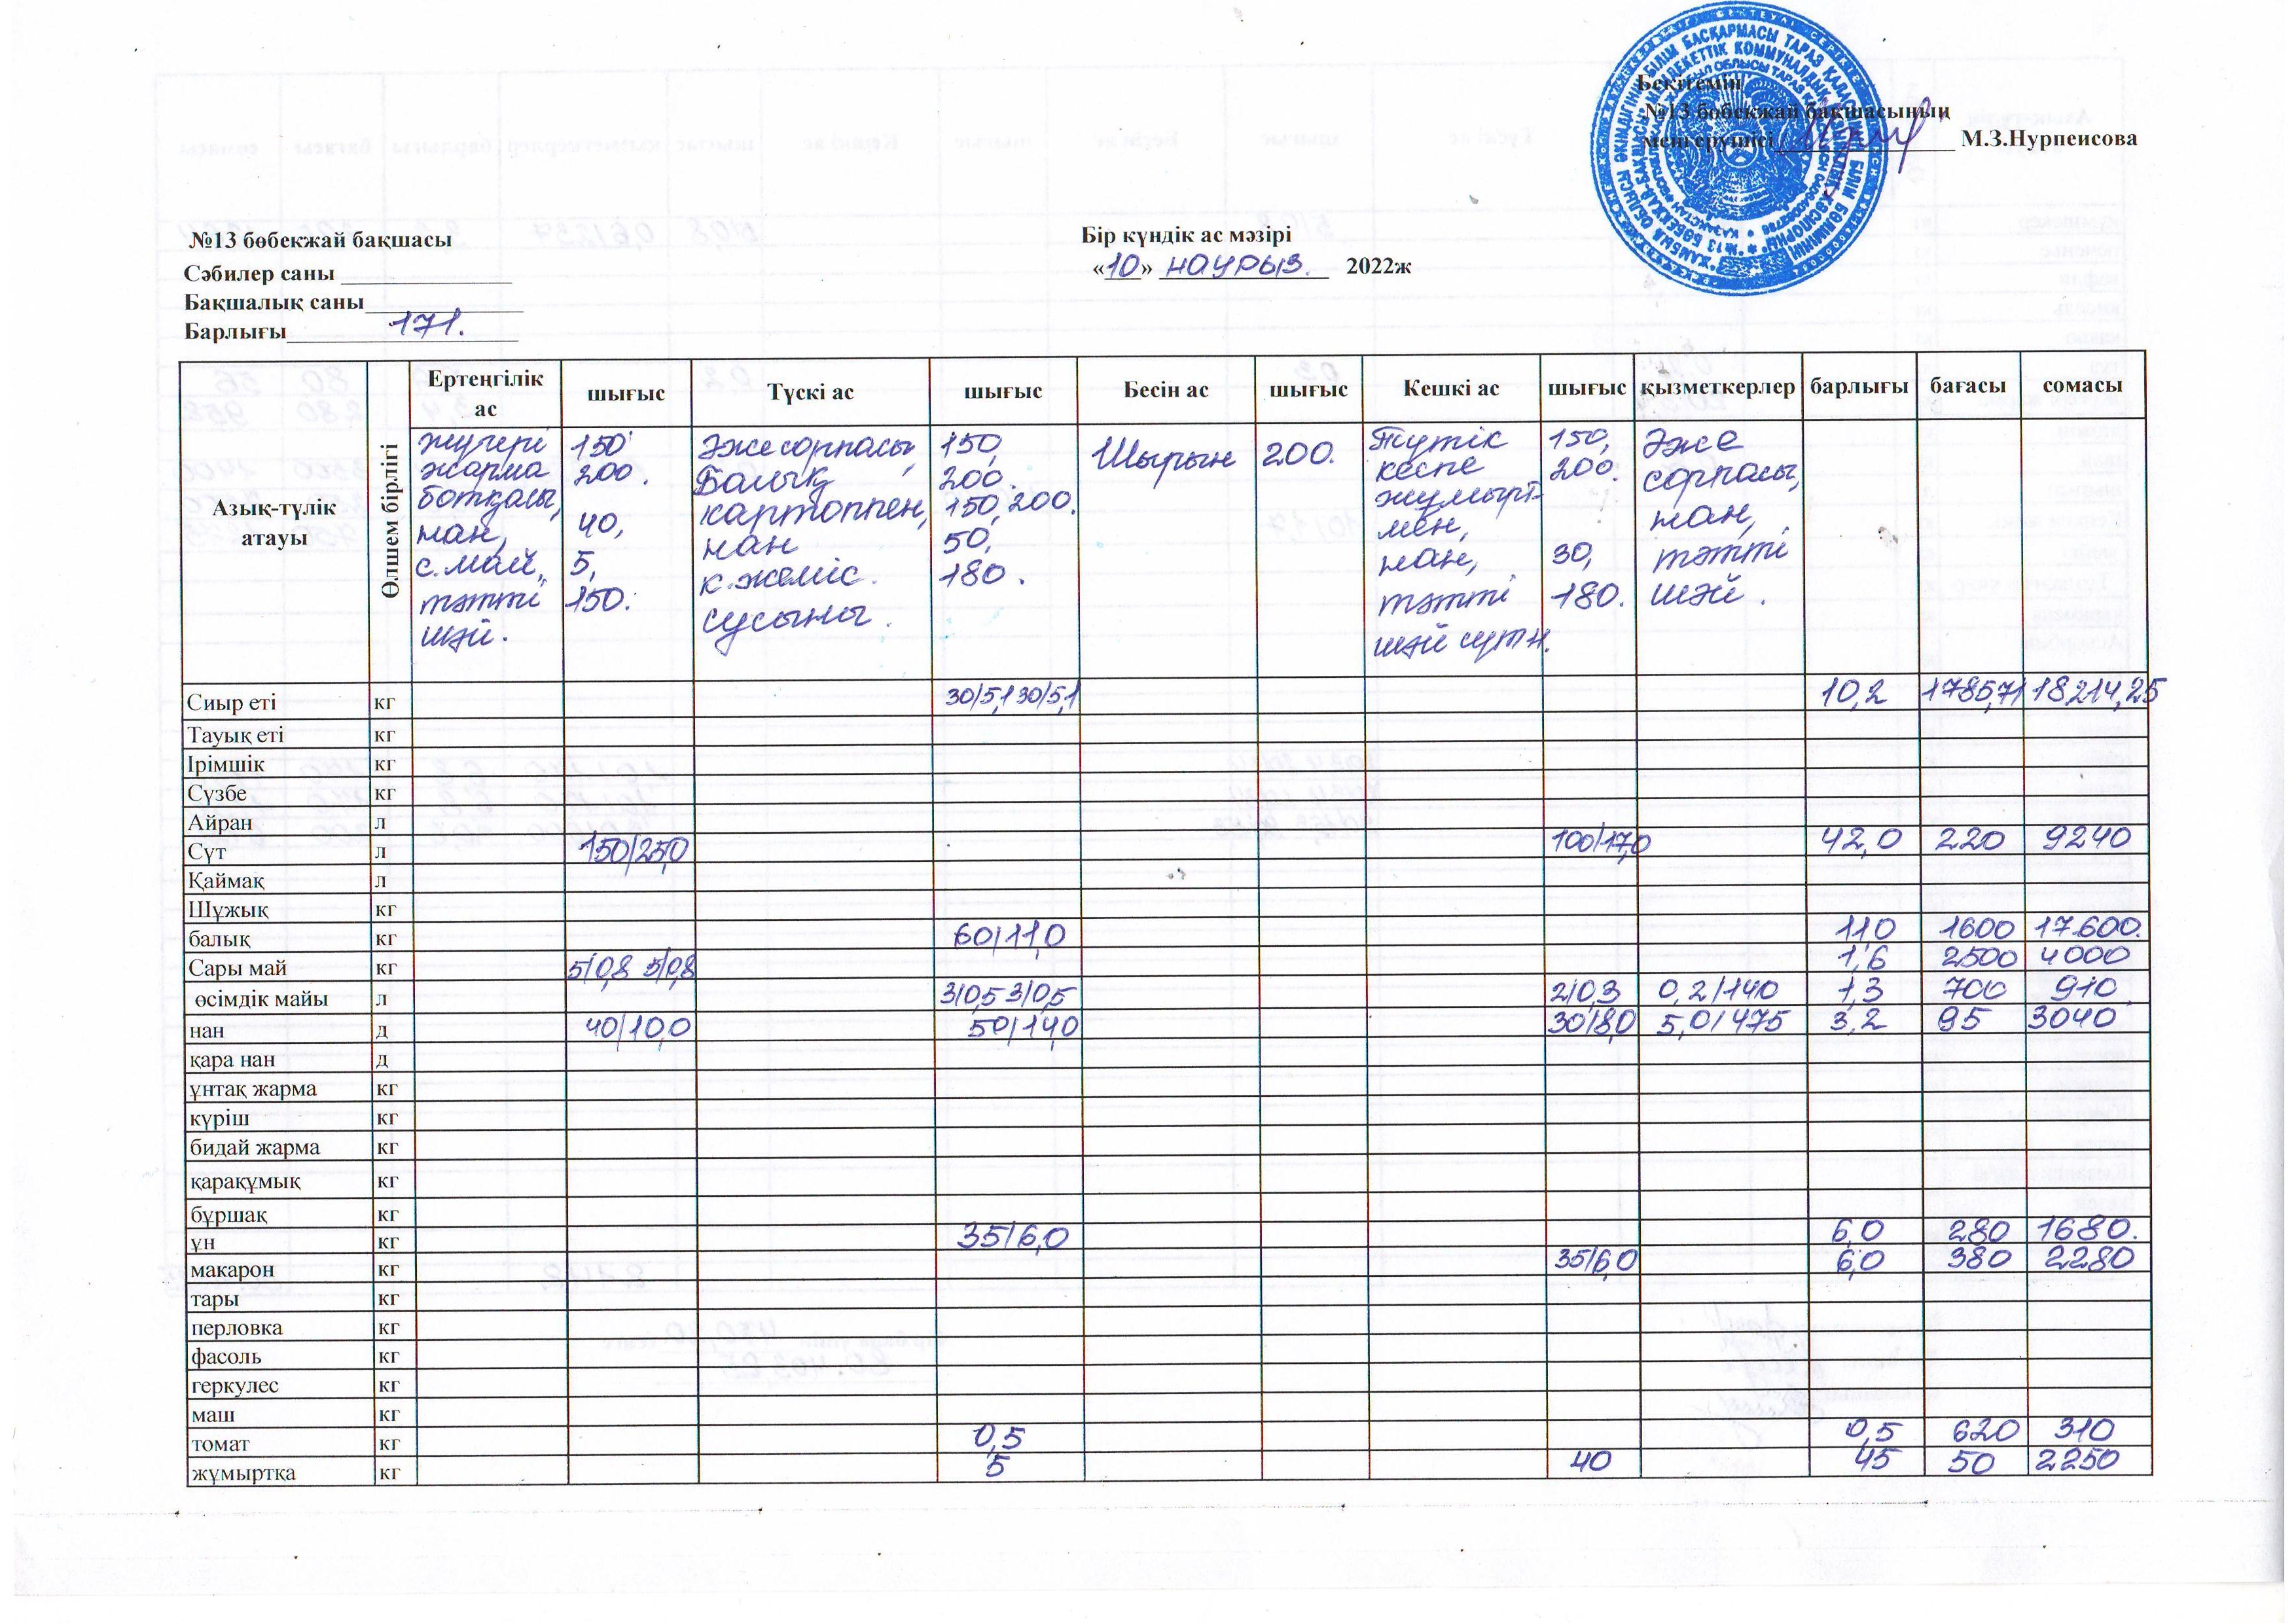 Бекітемін
№13 бөбекжай бақшасының
меңгерушісі ____________ М.З.Нурпеисова
№13 бөбекжай бақшасы
Бір күндік ас мәзірі
Сәбилер саны ____________
«10» наурыз. 2022ж
Бақшалық саны ____________
Барлығы 171.
Азық-түлік атауы Өлшем бірлігі Ертеңгілік ас шығыс Түскі ас шығыс Бесін ас шығыс Кешкі ас шығыс қызметкерлер барлығы бағасы сомасы
жүгері жарма ботқасы, нан, с.май, тәтті шәй.
150 200. 40, 5, 150.
Әже сорпасы, Балық картоппен, нан к.жеміс. сусыны.
150, 200. 150, 200. 50, 180.
Шырын
200.
Түтік кеспе жұмырт- мен, нан, тәтті шәй сүтн.
150, 200. 30, 180.
Әже сорпасы, нан, тәтті шәй.
Сиыр еті кг 30/5,1 30/5,1 10,2 1785,71 18214,25
Тауық еті кг
Ірімшік кг
Сүзбе кг
Айран л
Сүт л 150/25,0 100/17,0 42,0 220 9240
Қаймақ л
Шұжық кг
балық кг 60/11,0 11,0 1600 17.600.
Сары май кг 5/0,8 5/0,8 1,6 2500 4000
өсімдік майы л 3/0,5 3/0,5 2/0,3 0,2/140 1,3 700 910
нан д 40/10,0 50/14,0 30/8,0 5,0/475 3,2 95 3040
қара нан д
ұнтақ жарма кг
күріш кг
бидай жарма кг
қарақұмық кг
бұршақ кг
ұн кг 35/6,0 6,0 280 1680.
макарон кг 35/6,0 6,0 380 2280
тары кг
перловка кг
фасоль кг
геркулес кг
маш кг
томат кг 0,5 0,5 620 310
жұмыртқа кг 5 40 45 50 2250